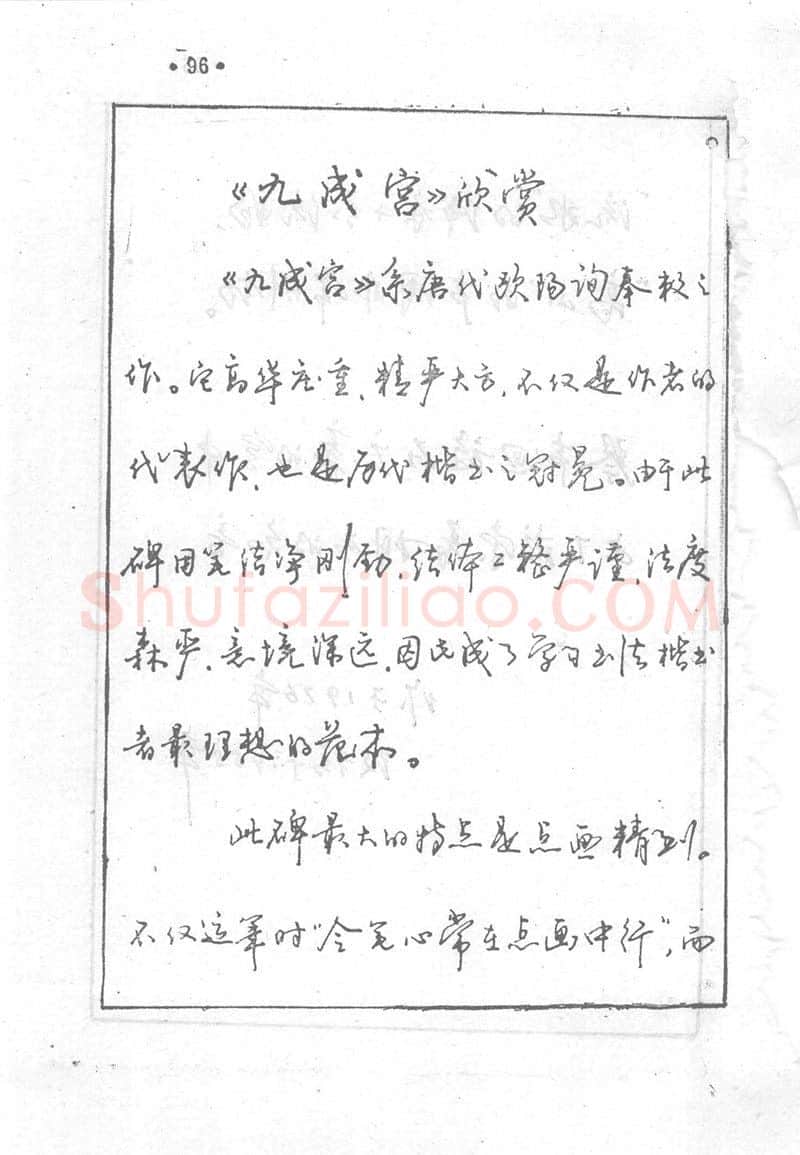 ·96·
《九成宫》欣赏
《九成宫》系唐代欧阳询奉敕之
作。它高华庄重、精严大方，不仅是作者的
代表作，也是历代楷书之冠冕。由于此
碑用笔洁净刚劲，结体工整严谨，法度
Shufaziliao.COM
森严，意境深远，因此成了学习书法楷书
者最理想的范本。
此碑最大的特点是点画精到。
不仅运笔时“令笔心常在点画中行”，而